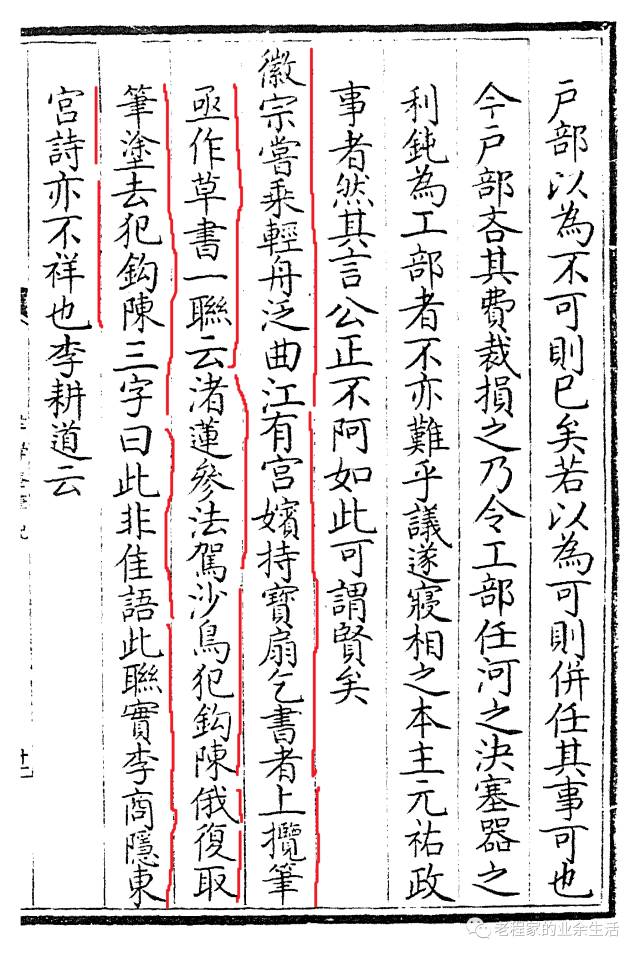 戶部以為不可則已矣若以為可則併任其事可也
今戶部吝其費裁損之乃令工部任河之決塞器之
利鈍為工部者不亦難乎議遂寢相之本主元祐政
事者然其言公正不阿如此可謂賢矣
徽宗嘗乘輕舟泛曲江有宮嬪持寶扇乞書者上攬筆
亟作草書一聯云渚蓮參法駕沙鳥犯鈎陳俄復取
筆塗去犯鈎陳三字曰此非佳語此聯實李商隱東
宮詩亦不祥也李耕道云
老程家的业余生活